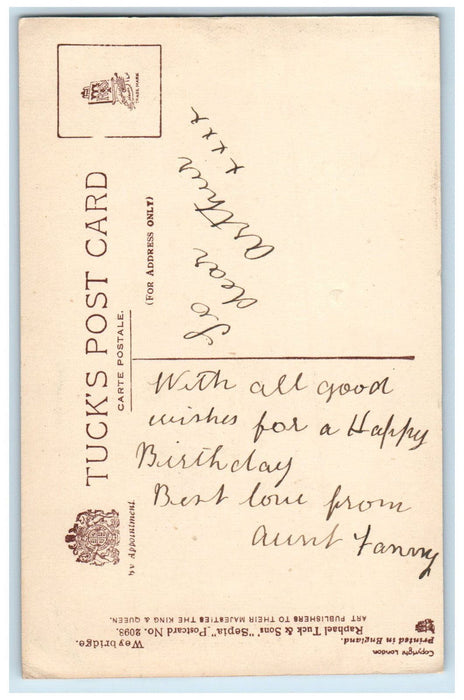 TUCK'S POST CARD
CARTE POSTALE.
(FOR ADDRESS ONLY)
TRADE MARK
by Appointment
To
dear
arthur
xxxx
With all good
wishes for a Happy
Birthday
Best love from
aunt Fanny
Weybridge.
Raphael Tuck & Sons' "Sepia" Postcard No. 2098.
ART PUBLISHERS TO THEIR MAJESTIES THE KING & QUEEN.
Copyright London
Printed in England.